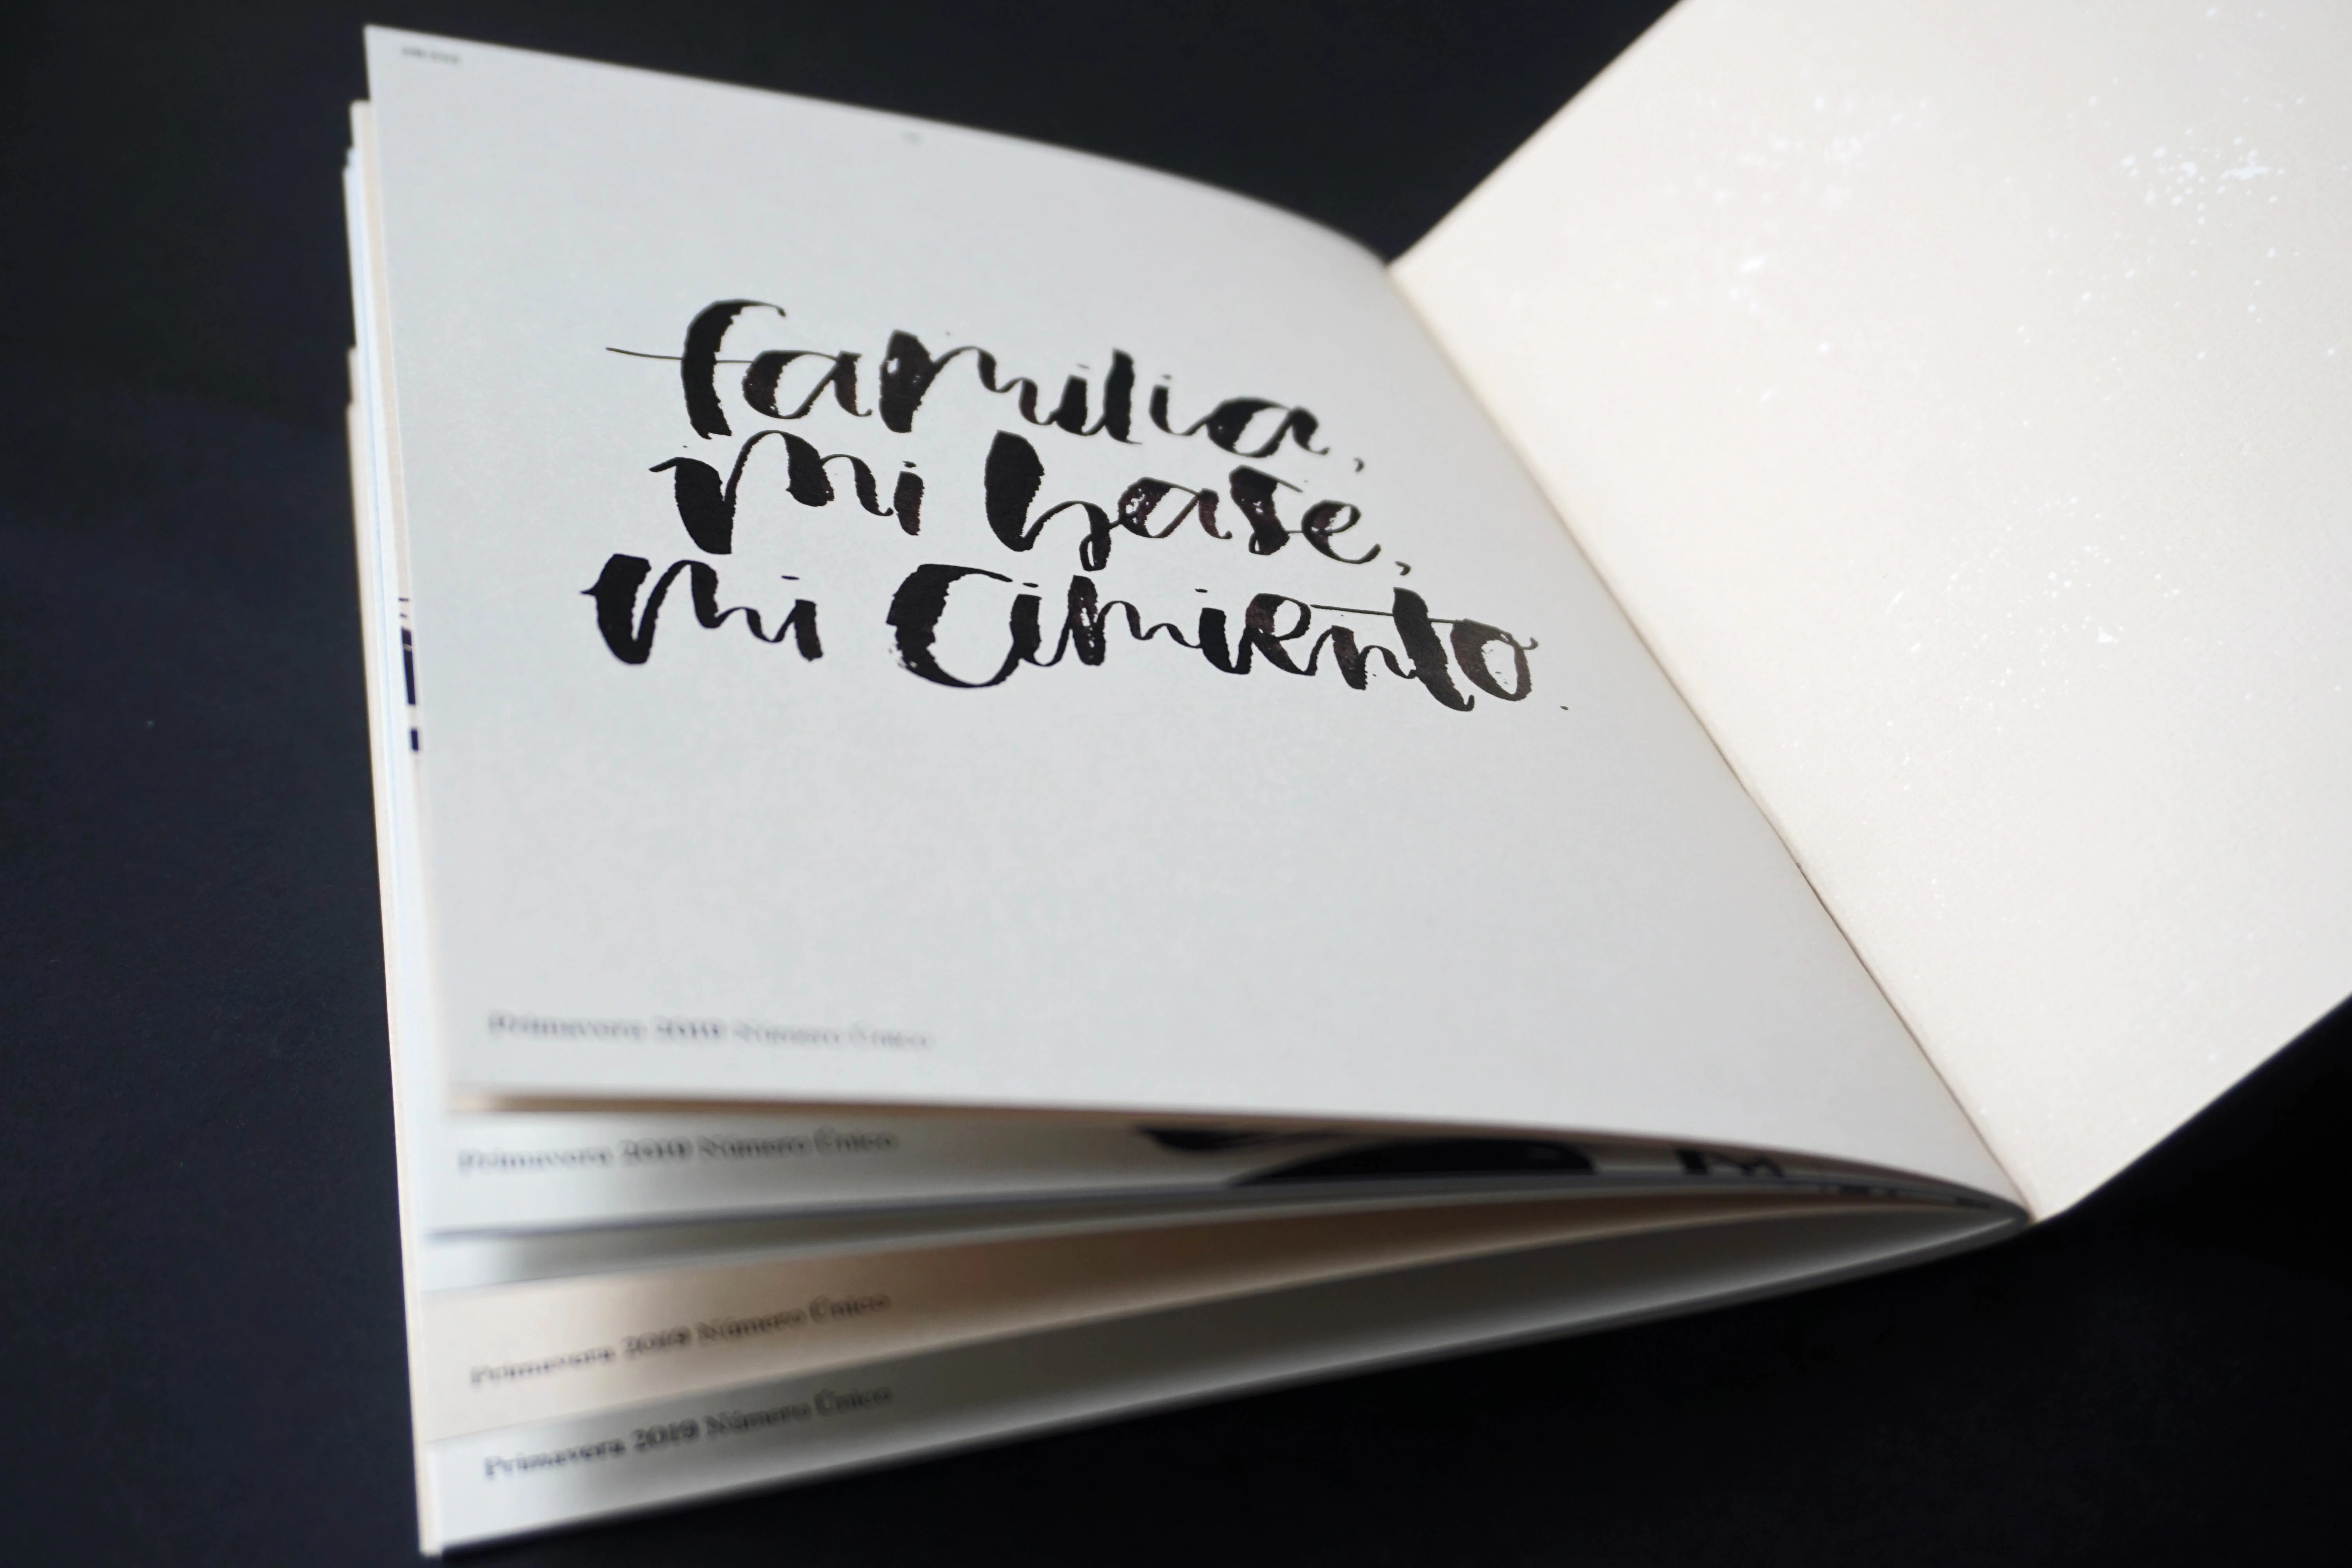 familia,
mi base,
mi cimiento.
Primavera 2019 Número Único
Primavera 2019 Número Único
Primavera 2019 Número Único
Primavera 2019 Número Único